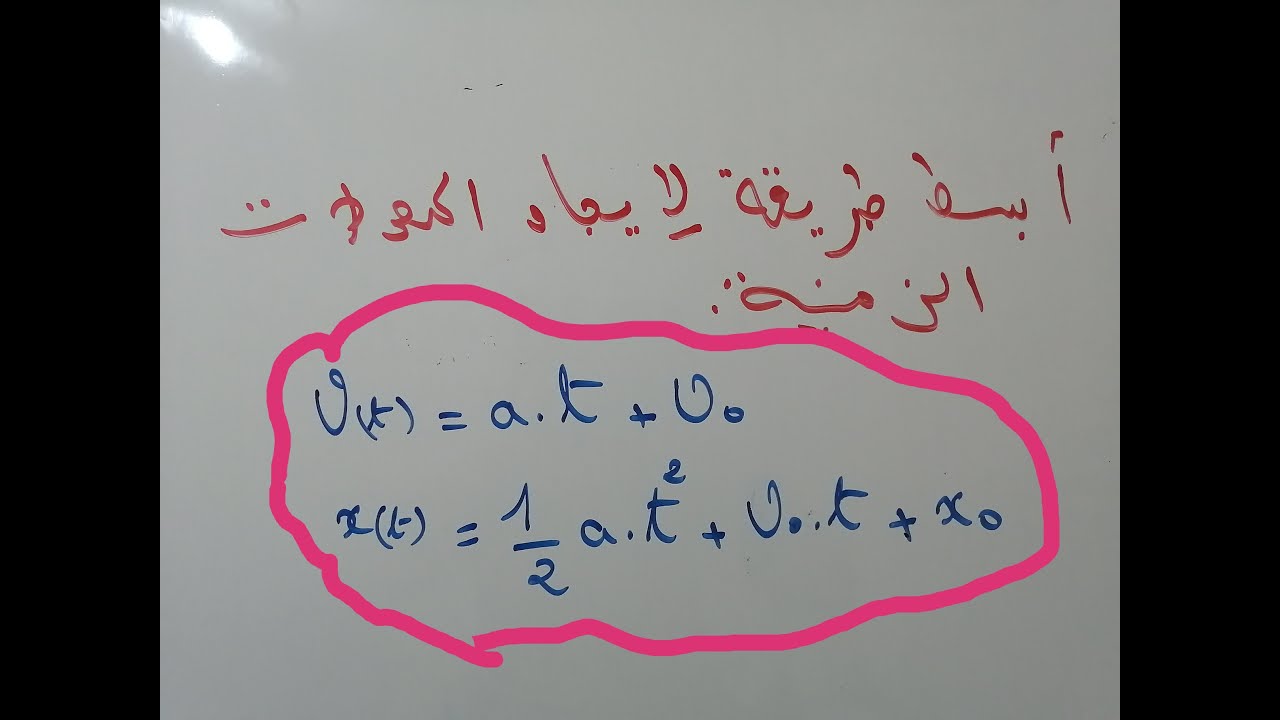 أبسط طريقة لإيجاد المعادلات
الزمنية:
v(t) = a.t + v₀
x(t) = 1/2 a.t² + v₀.t + x₀